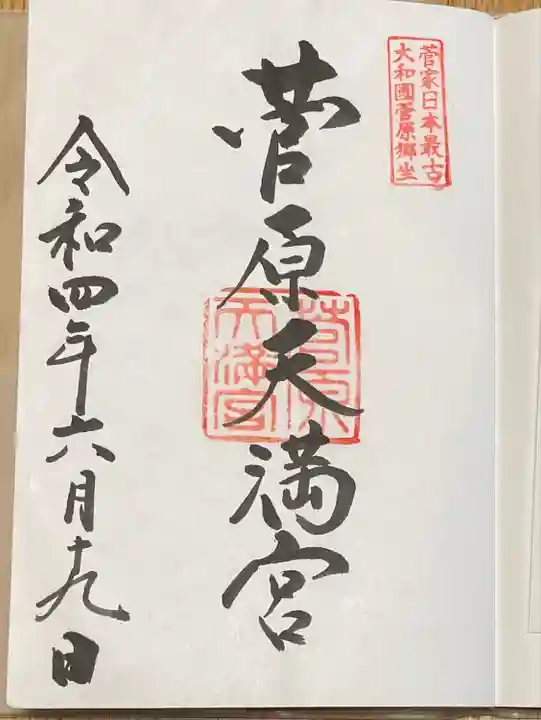 菅家日本最古
大和國菅原郷坐
菅原天満宮
菅原
天満宮
令和四年六月十九日